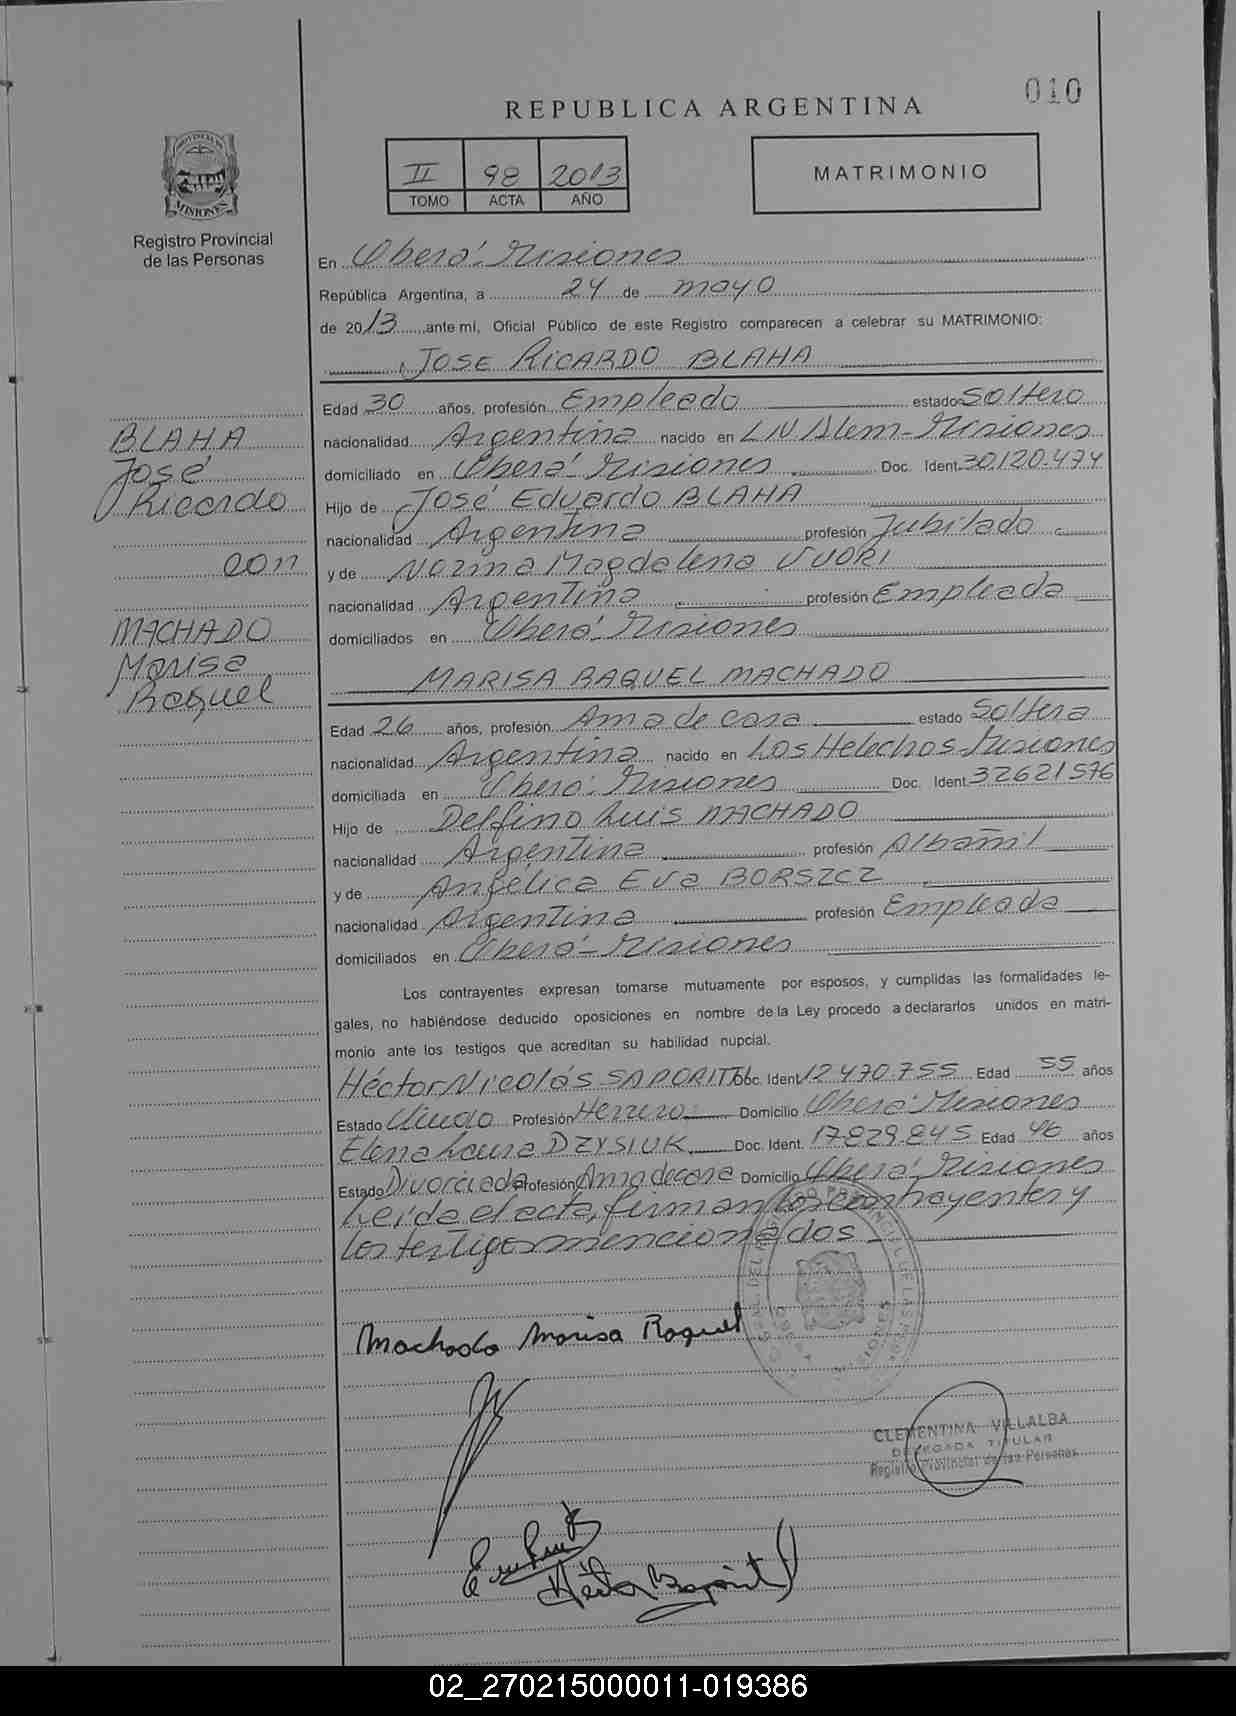 010
REPUBLICA ARGENTINA
PROVINCIA DE
MISIONES
Registro Provincial
de las Personas
II 98 2013
TOMO ACTA AÑO
MATRIMONIO
En Oberá-Misiones
República Argentina, a 24 de mayo
de 2013 ante mi, Oficial Público de este Registro comparecen a celebrar su MATRIMONIO:
JOSE RICARDO BLAHA
Edad 30 años, profesión Empleado estado Soltero
nacionalidad Argentina nacido en LN Alem-Misiones
domiciliado en Oberá-Misiones Doc. Ident. 30.120.474
Hijo de José Eduardo BLAHA
nacionalidad Argentina profesión Jubilado
y de Norma Magdalena VUORI
nacionalidad Argentina profesión Empleada
domiciliados en Oberá-Misiones
BLAHA
José
Ricardo
con
MACHADO
Marisa
Raquel
MARISA RAQUEL MACHADO
Edad 26 años, profesión Ama de casa estado Soltera
nacionalidad Argentina nacido en Los Helechos-Misiones
domiciliada en Oberá-Misiones Doc. Ident. 32621576
Hijo de Delfino Luis MACHADO
nacionalidad Argentina profesión Albañil
y de Angélica Eva BORSZCZ
nacionalidad Argentina profesión Empleada
domiciliados en Oberá-Misiones
Los contrayentes expresan tomarse mutuamente por esposos, y cumplidas las formalidades le-
gales, no habiéndose deducido oposiciones en nombre de la Ley procedo a declararlos unidos en matri-
monio ante los testigos que acreditan su habilidad nupcial.
Héctor Nicolás SAPORITTI Doc. Ident. 12.470.755 Edad 55 años
Estado Viudo Profesión Herrero Domicilio Oberá-Misiones
Elena Laura DZYSIUK Doc. Ident. 17.829.845 Edad 46 años
Estado Divorciada Profesión Ama de casa Domicilio Oberá-Misiones
Leída el acta, firman los contrayentes y
los testigos mencionados
Machado Marisa Raquel
CLEMENTINA VILLALBA
DELEGADA TITULAR
Registro Provincial de las Personas
02_270215000011-019386